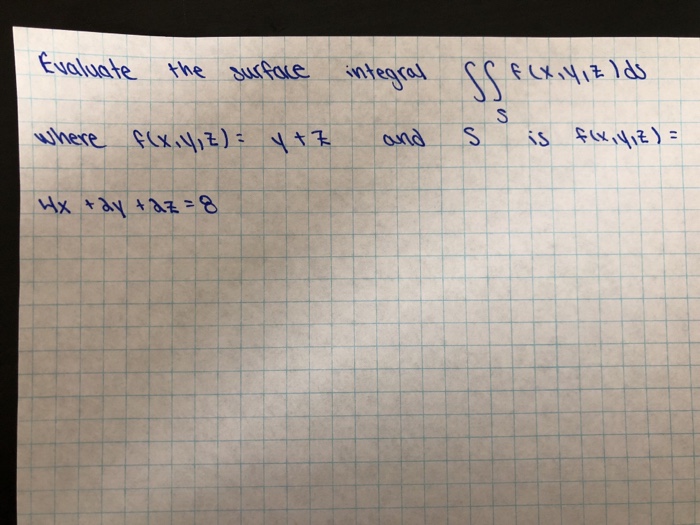 Evaluate the surface integral ∬ f(x,y,z)ds
S
where f(x,y,z) = y+z and S is f(x,y,z) =
4x + 2y + 2z = 8